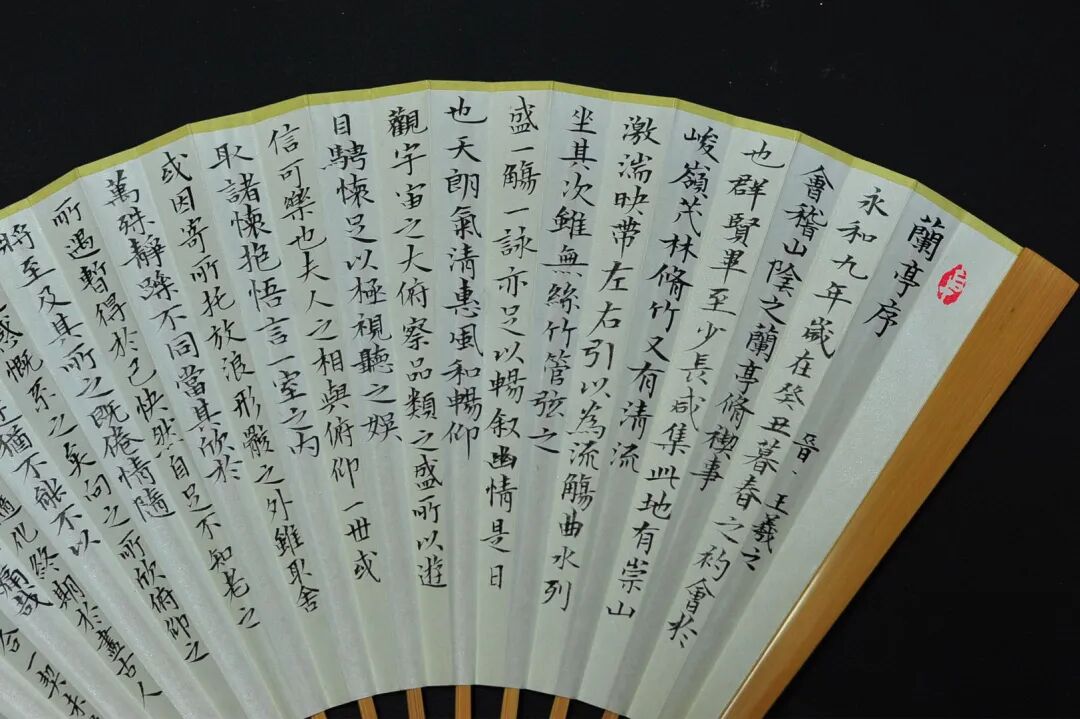 蘭亭序
晉、王羲之
永和九年歲在癸丑暮春之初會於
會稽山陰之蘭亭脩稧事
也群賢畢至少長咸集此地有崇山
峻嶺茂林脩竹又有清流
激湍映帶左右引以為流觴曲水列
坐其次雖無絲竹管弦之
盛一觴一詠亦足以暢叙幽情是日
也天朗氣清惠風和暢仰
觀宇宙之大俯察品類之盛所以遊
目騁懷足以極視聽之娛
信可樂也夫人之相與俯仰一世或
取諸懷抱悟言一室之內
或因寄所托放浪形骸之外雖取舍
萬殊靜躁不同當其欣於
所遇暫得於己快然自足不知老之
將至及其所之既倦情隨
感慨系之矣向之所欣俯仰之
猶不能不以
化終期於盡古人
痛哉
合一契未